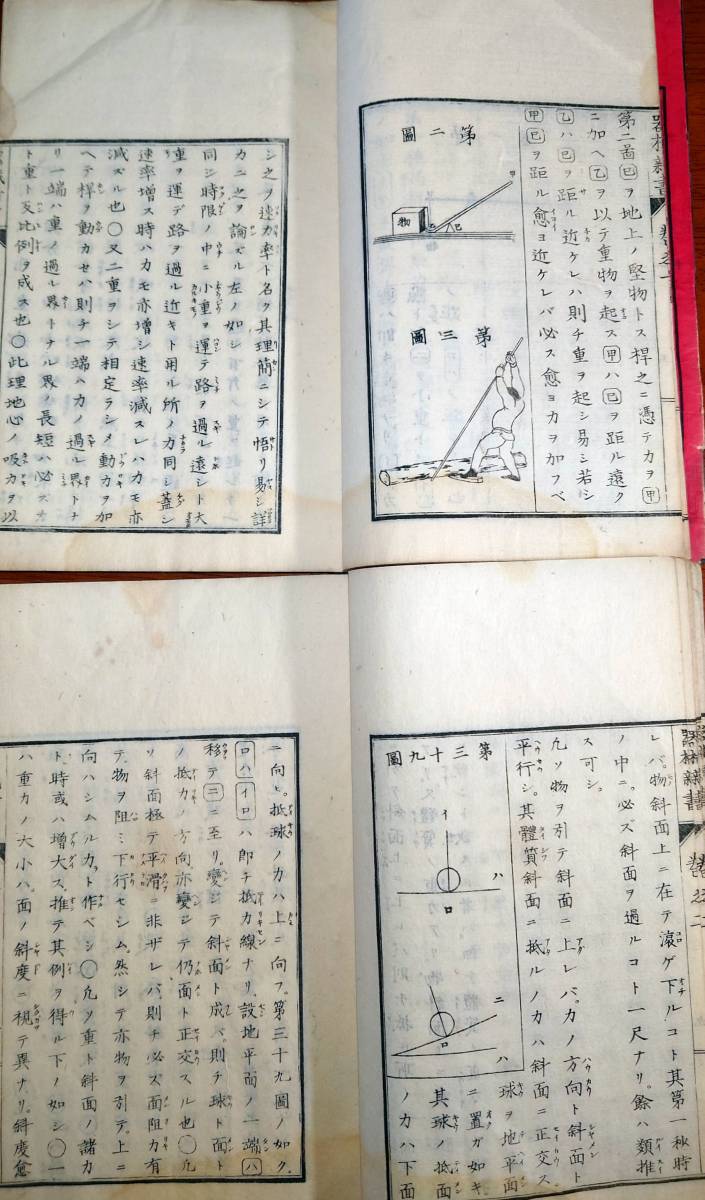 第二啚㔾ヲ地上ノ堅物トス桿之ニ憑テカヲ甲
ニ加ヘ乙ヲ以テ重物ヲ起ス甲ハ㔾ヲ距ル遠ク
乙ハ㔾ヲ距ル近ケレハ則チ重ヲ起シ易シ若シ
甲㔾ヲ距ル愈ヨ近ケレバ必ス愈ヨ力ヲ加フベ
第二圖
物
第三圖
シ之ヲ速力率ト名ク其理簡ニシテ悟リ易シ詳
カニ之ヲ論ズル左ノ如シ
同シ時限ノ中ニ小重ヲ運テ路ヲ過ル遠シト大
重ヲ運デ路ヲ過ル近キト用ル所ノ力同シ蓋シ
速率增ス時ハカモ亦增シ速率減スレハカモ亦
減ズル也〇又二重ヲシテ相定ラシメ動力ヲ加
ヘテ桿ヲ動カセハ則チ一端ハカノ過ル界トナ
リ一端ハ重ノ過ル界トナル界ノ長短ハ必ス力
ト重ト反比例ヲ成ス也〇此理地心ノ吸力ヲ以
レバ。物斜面上ニ在テ滾ゲ下ルコト其第一秒時
ノ中ニ。必ズ斜面ヲ過ルコト一尺ナリ。餘ハ類推
ス可シ。
凡ソ物ヲ引テ斜面ニ上レバ。カノ方向ト斜面ト
平行シ。其體質斜面ニ抵ルノカハ斜面ニ正交ス
第三十九圖
イ
ハ
ロ
ニ
ロ
ハ
球ヲ地平面
ニ置ガ如キ
其球ノ抵面
ノカハ下面
ニ向ヒ。抵球ノカハ上ニ向フ。第三十九圖ノ如ク。
ロハイロハ即チ抵力線ナリ。設地平面ノ一端ハ
移テニニ至リ。變ジテ斜面ト成バ。則チ球ト面ト
ノ抵カノ方向亦變ジテ仍面ト正交スル也〇凡
ソ斜面極テ平滑ニ非ザレバ。則チ必ズ面阻力有
テ。物ヲ阻ミ下行セシム。然シテ亦物ヲ引テ。上ニ
向ハシムルカット作ベシ〇凡ソ重ト斜面ノ諸力
ト。時或ハ增大ス。推テ其例ヲ得ル下ノ如シ〇一
ハ重力ノ大小ハ。面ノ斜度ニ視テ異ナリ。斜度愈